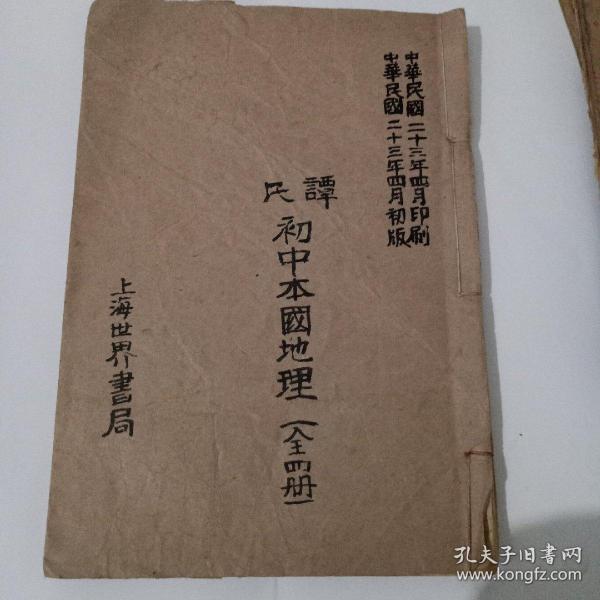 中華民國二十三年四月印刷
中華民國二十三年四月初版
譚氏
初中本國地理（全四册）
上海世界書局
孔夫子旧書网
www.kongfz.com